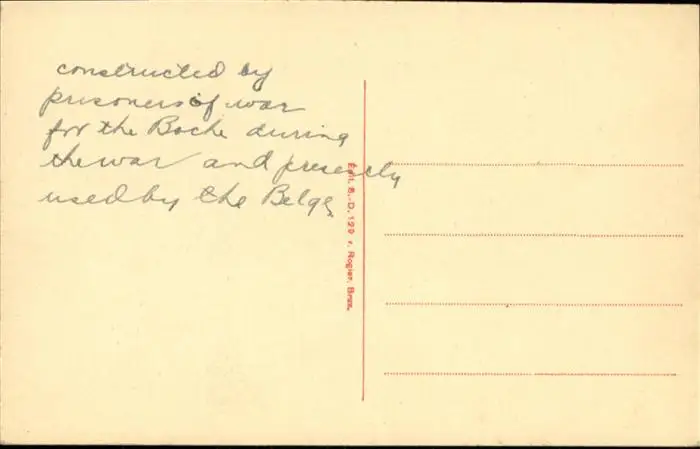 constructed by
prisoners of war
for the Boche during
the war and presently
used by the Belgs
Edit. S.-D. 129 r. Rogier, Brux.